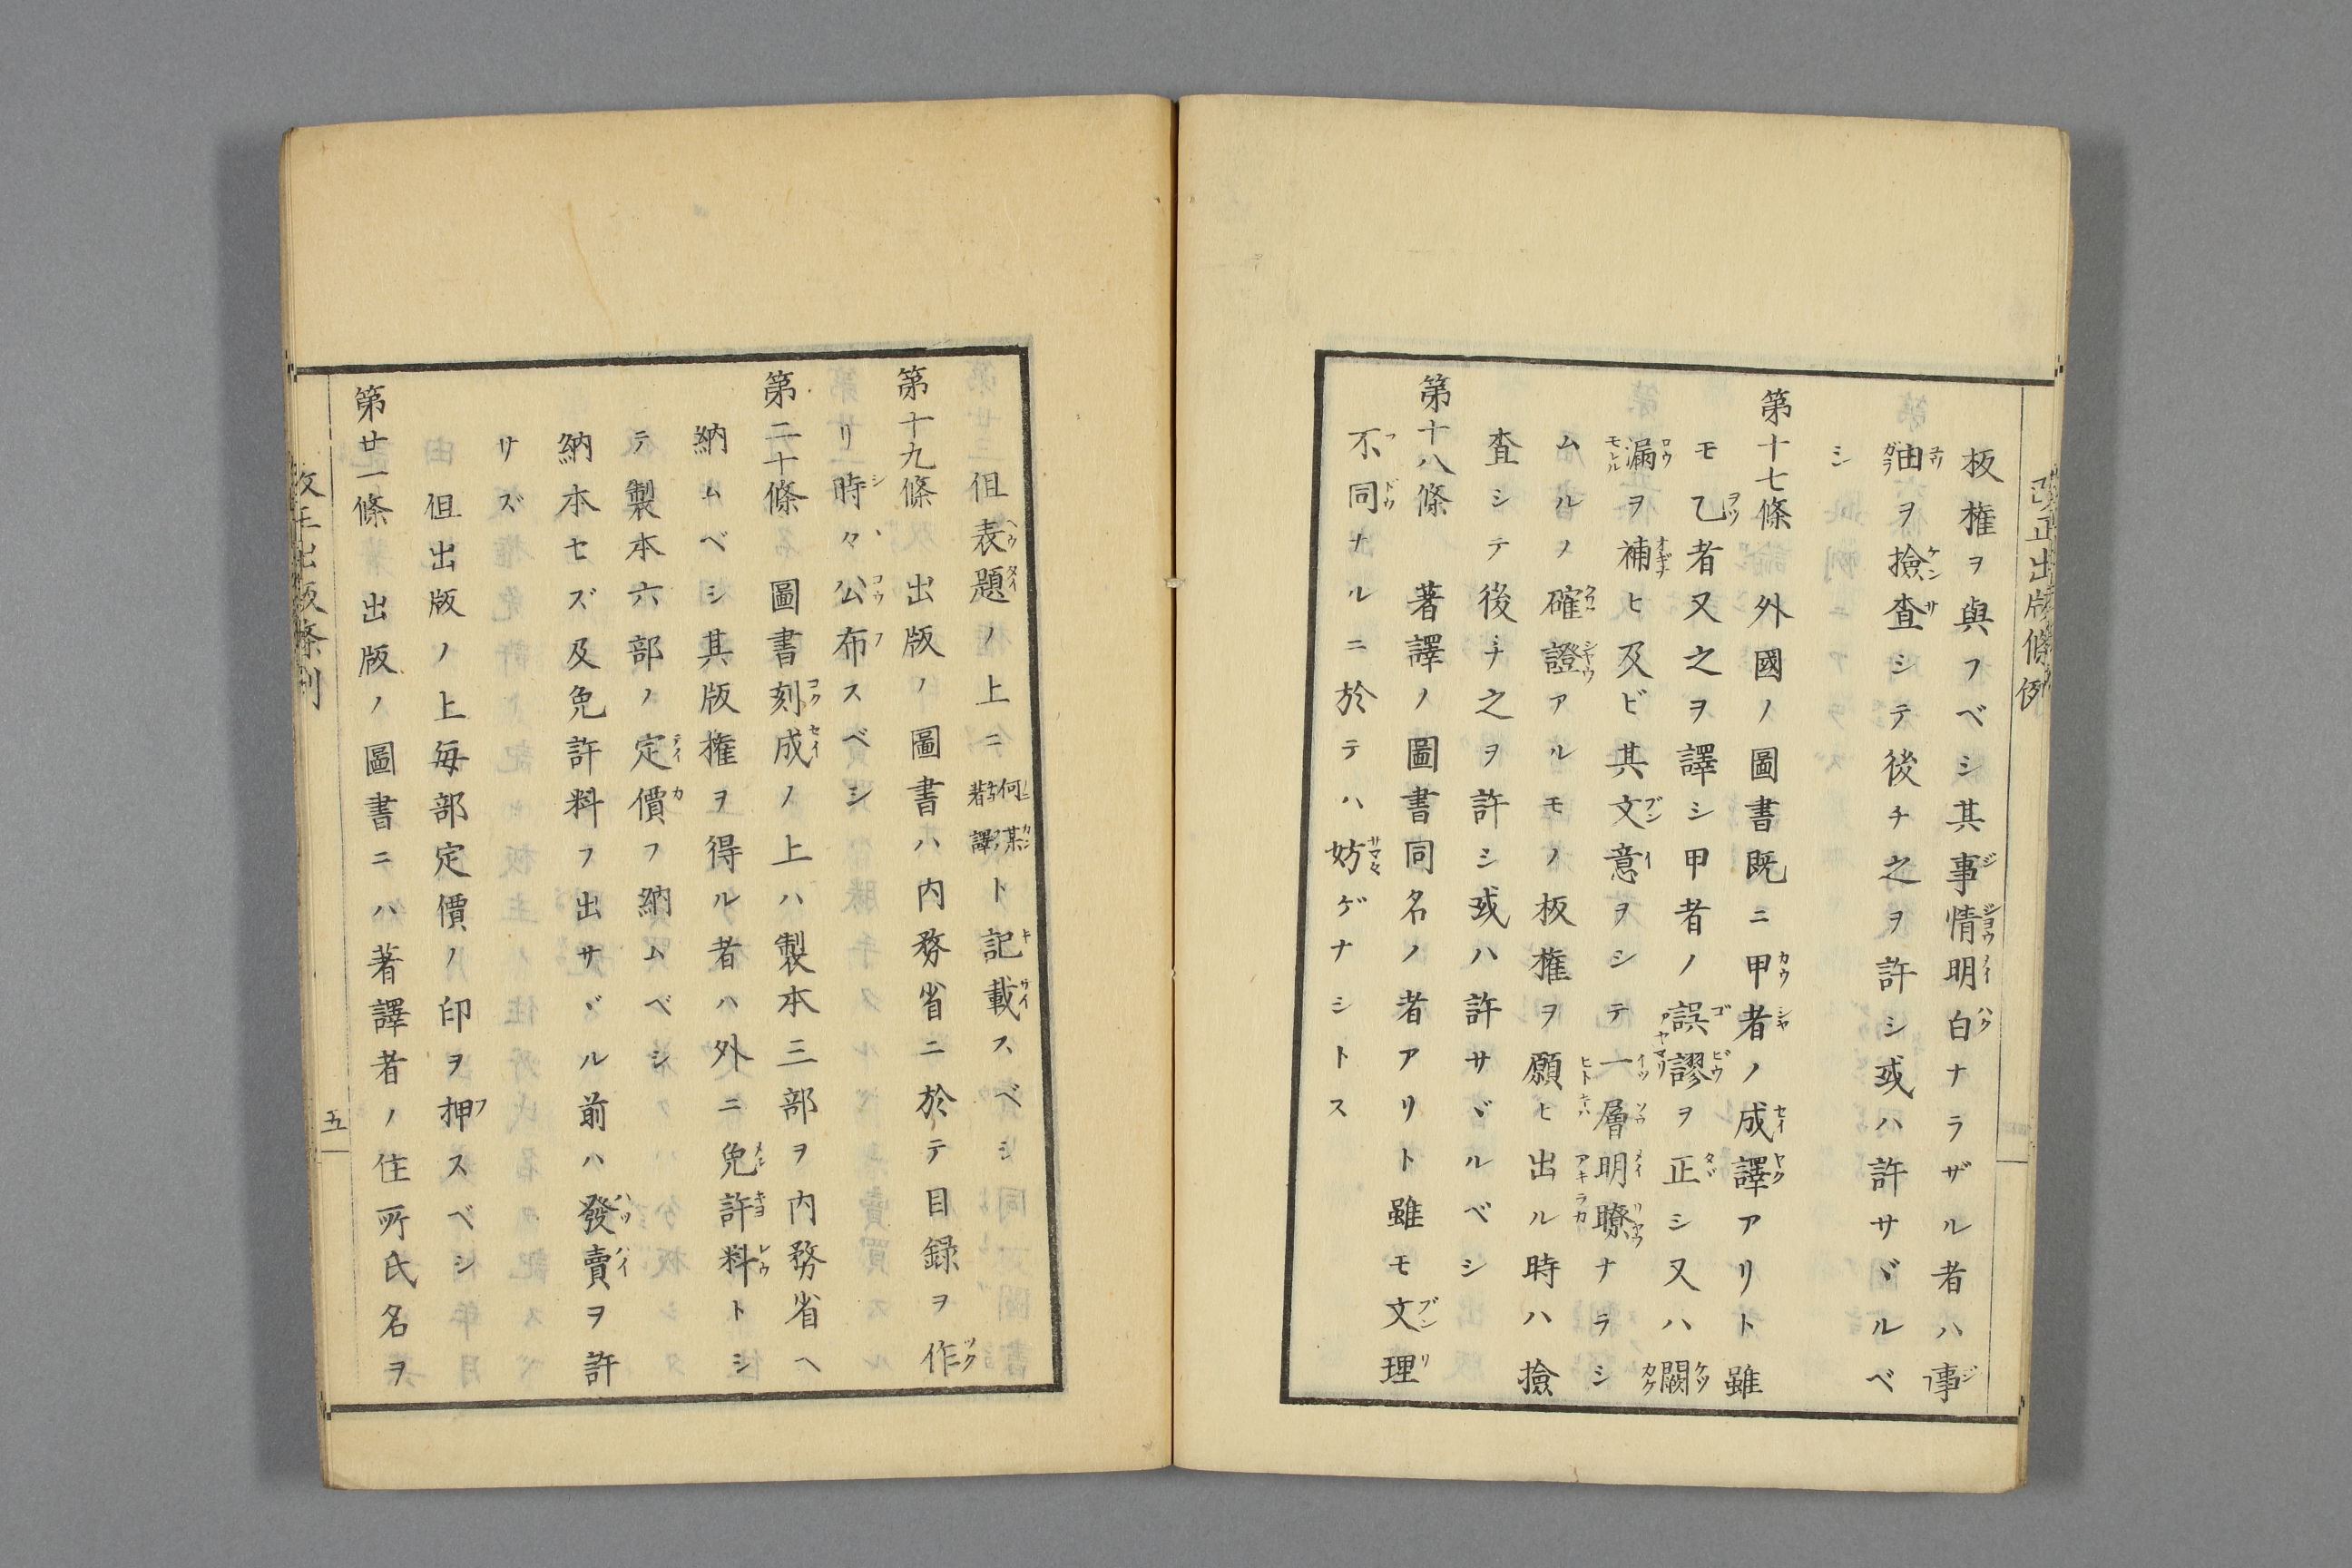 改正出版條例
板権ヲ與フベシ其事情明白ナラザル者ハ事
由ヲ撿査シテ後チ之ヲ許シ或ハ許サヾルベ
シ
第十七條 外國ノ圖書既ニ甲者ノ成譯アリト雖
モ乙者又之ヲ譯シ甲者ノ誤謬ヲ正シ又ハ闕
漏ヲ補ヒ及ビ其文意ヲシテ一層明瞭ナラシ
ムルノ確證アルモノ板権ヲ願ヒ出ル時ハ撿
査シテ後チ之ヲ許シ或ハ許サヾルベシ
第十八條 著譯ノ圖書同名ノ者アリト雖モ文理
不同ナルニ於テハ妨ゲナシトス
但表題ノ上ニ何某著譯ト記載スベシ
第十九條 出版ノ圖書ハ内務省ニ於テ目録ヲ作
リ時々公布スベシ
第二十條 圖書刻成ノ上ハ製本三部ヲ内務省ヘ
納ムベシ其版權ヲ得ル者ハ外ニ免許料トシ
テ製本六部ノ定價フ納ムベシ
納本セズ及免許料フ出サヾル前ハ發賣ヲ許
サズ
但出版ノ上毎部定價ノ印ヲ押スベシ
第廿一條 出版ノ圖書ニハ著譯者ノ住所氏名ヲ
改正出版條例
五